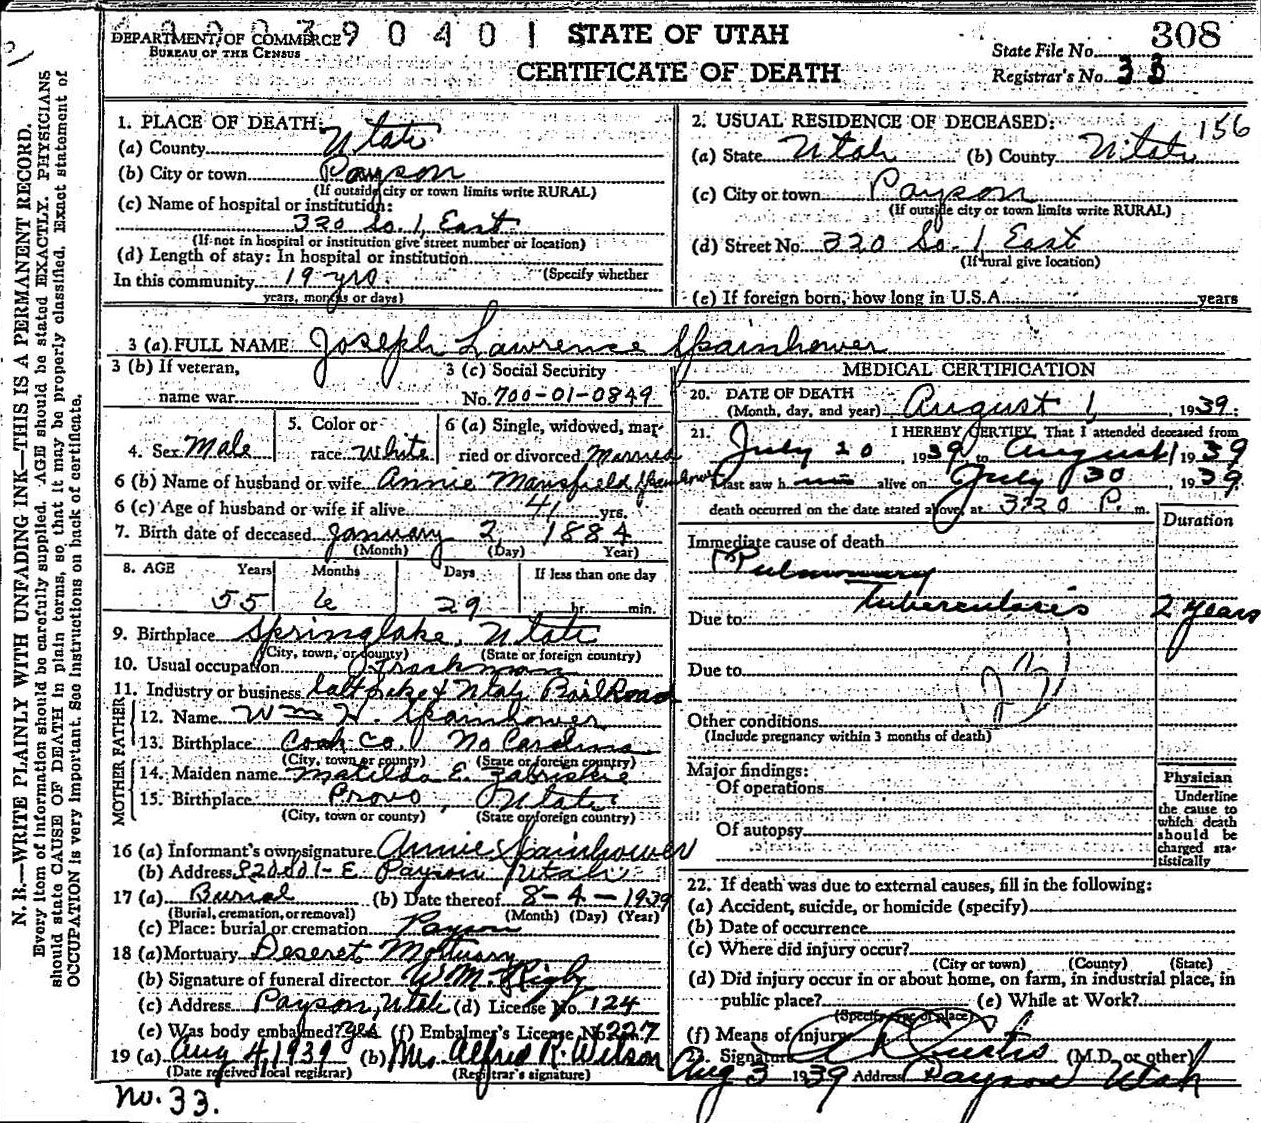 DEPARTMENT OF COMMERCE 9 0 4 0 1 STATE OF UTAH 308
BUREAU OF THE CENSUS
State File No.
CERTIFICATE OF DEATH
Registrar's No. 33
1. PLACE OF DEATH:
(a) County Utah
(b) City or town Payson
(If outside city or town limits write RURAL)
(c) Name of hospital or institution:
320 So. 1 East
(If not in hospital or institution give street number or location)
(d) Length of stay: In hospital or institution
(Specify whether
In this community 19 yrs.
years, months or days)
2. USUAL RESIDENCE OF DECEASED: 156
(a) State Utah (b) County Utah
(c) City or town Payson
(If outside city or town limits write RURAL)
(d) Street No. 320 So. 1 East
(If rural give location)
(e) If foreign born, how long in U.S.A. years
3 (a) FULL NAME Joseph Lawrence Spainhower
3 (b) If veteran, 3 (c) Social Security
name war No. 700-01-0849
4. Sex Male
5. Color or
race White
6 (a) Single, widowed, mar-
ried or divorced Married
6 (b) Name of husband or wife Annie Mansfield Spainhower
6 (c) Age of husband or wife if alive 41 yrs.
7. Birth date of deceased January 2, 1884
(Month) (Day) Year)
8. AGE Years Months Days If less than one day
55 6 29 hr. min.
9. Birthplace Springlake, Utah
(City, town, or county) (State or foreign country)
10. Usual occupation
11. Industry or business Salt Lake & Utah Railroad
FATHER
12. Name Wm H. Spainhower
13. Birthplace Co. No Carolina
(City, town or county) (State or foreign country)
MOTHER
14. Maiden name Matilda E. Zabriskie
15. Birthplace Provo, Utah
(City, town or county) (State or foreign country)
16 (a) Informant's own signature Annie Spainhower
(b) Address Payson Utah
17 (a) Burial (b) Date thereof 8-4-1939
(Burial, cremation, or removal) (Month) (Day) (Year)
(c) Place: burial or cremation Payson
18 (a) Mortuary Deseret Mortuary
(b) Signature of funeral director W.M. Rigby
(c) Address Payson, Utah (d) License No. 124
(e) Was body embalmed? yes (f) Embalmer's License No. 227
19 (a) Aug 4, 1939 (b) Mrs. Alfred R. Wilson
(Date received local registrar) (Registrar's signature)
No. 33.
MEDICAL CERTIFICATION
20. DATE OF DEATH
(Month, day, and year) August 1, 1939
21. I HEREBY CERTIFY, That I attended deceased from
July 20, 1939 to August 1 1939
I last saw h alive on July 30 1939
death occurred on the date stated above, at 3:20 P. m.
Duration
Immediate cause of death
Pulmonary
Tuberculosis 2 years
Due to
Due to
Other conditions
(Include pregnancy within 3 months of death)
Major findings:
Of operations
Of autopsy
Physician
Underline
the cause to
which death
should be
charged sta-
tistically
22. If death was due to external causes, fill in the following:
(a) Accident, suicide, or homicide (specify)
(b) Date of occurrence
(c) Where did injury occur?
(City or town) (County) (State)
(d) Did injury occur in or about home, on farm, in industrial place, in
public place? (e) While at Work?
(Specify type of place)
(f) Means of injury
23. Signature Curtis (M.D. or other)
Aug 3 1939 Address Payson Utah
N. B.—WRITE PLAINLY WITH UNFADING INK—THIS IS A PERMANENT RECORD.
Every item of information should be carefully supplied. AGE should be stated EXACTLY. PHYSICIANS
should state CAUSE OF DEATH in plain terms, so that it may be properly classified. Exact statement of
OCCUPATION is very important. See instructions on back of certificate.